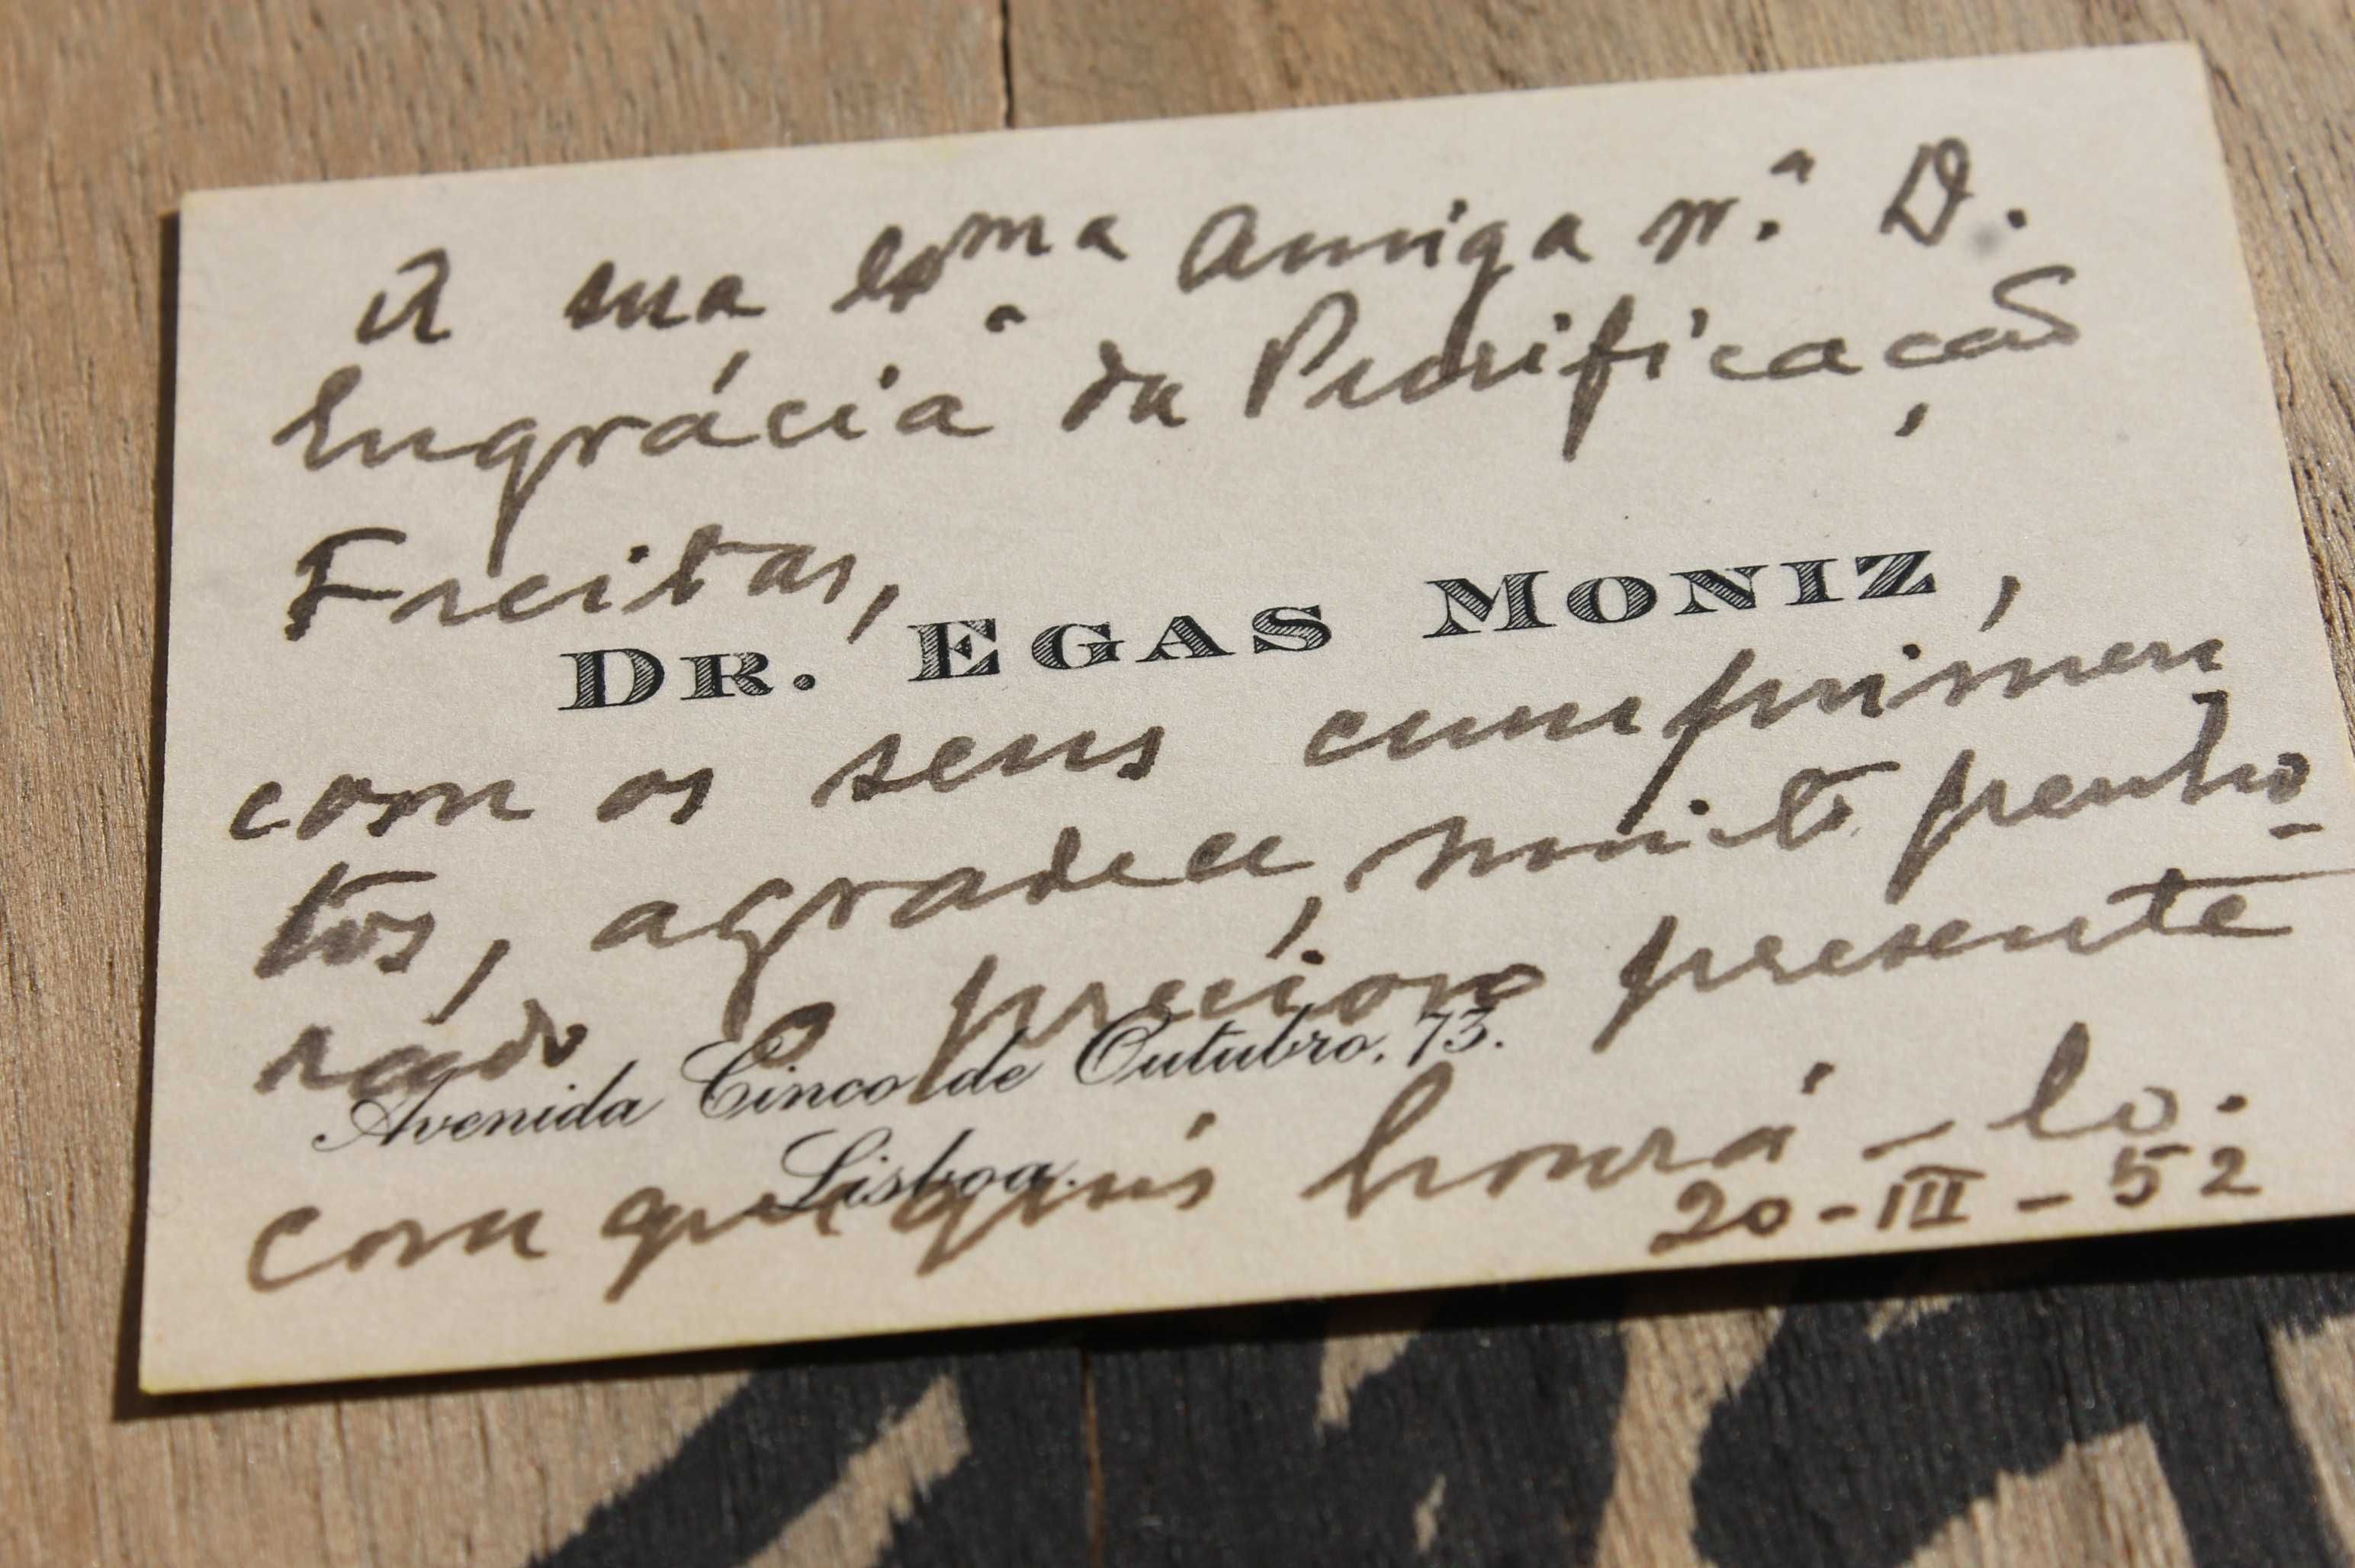 A sua Exma Amiga Sr.ª D.
Engrácia da Purificação
Freitas,
DR. EGAS MONIZ,
com os seus cumprimen
tos, agradece, muito penho-
rado o precioso presente
Avenida Cinco de Outubro, 73.
Lisboa.
com que quis honrá-lo.
20-III-52